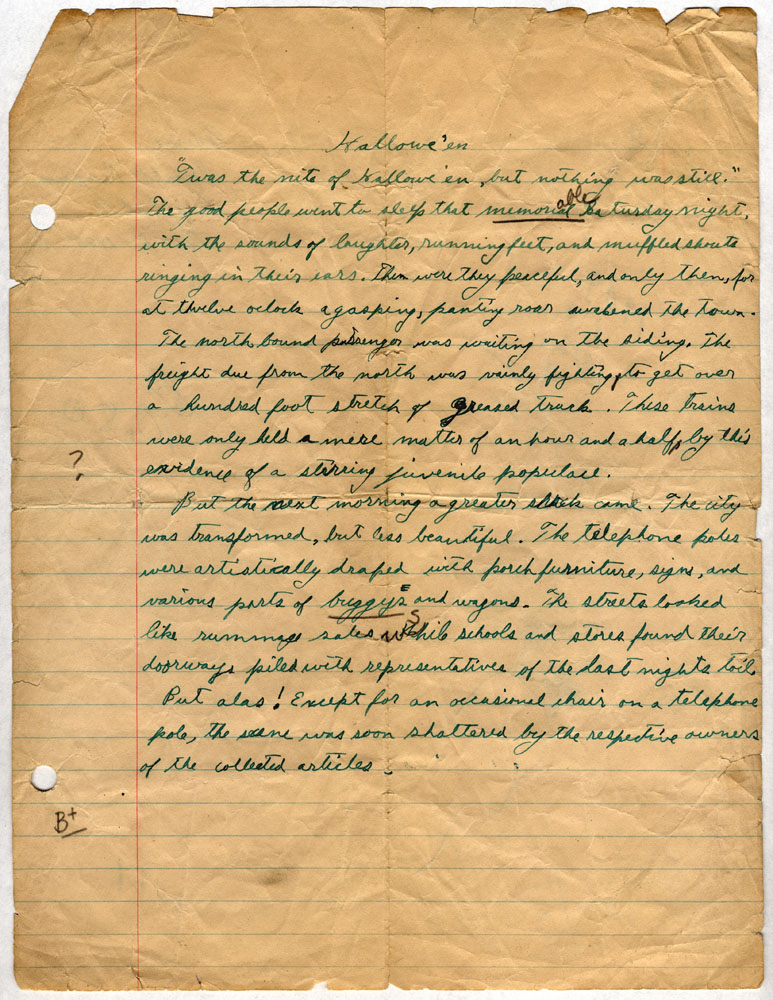 Hallowe'en
"Twas the nite of Hallowe'en, but nothing was still."
The good people went to sleep that memorial able Saturday night,
with the sounds of laughter, running feet, and muffled shouts
ringing in their ears. Then were they peaceful, and only then, for
at twelve oclock a gasping, panting roar awakened the town.
The north bound passenger was waiting on the siding. The
freight due from the north was vainly fighting, to get over
a hundred foot stretch of greased track. These trains
were only held a mere matter of an hour and a half, by this
? evidence of a stirring juvenile populace.
But the next morning a greater came. The city
was transformed, but less beautiful. The telephone poles
were artistically draped with porch furniture, signs, and
various parts of buggys and wagons. The streets looked
like rummage sales while schools and stores found their
doorways piled with representatives of the last nights toil
But alas! Except for an occasional chair on a telephone
pole, the scene was soon shattered by the respective owners
of the collected articles.
B+